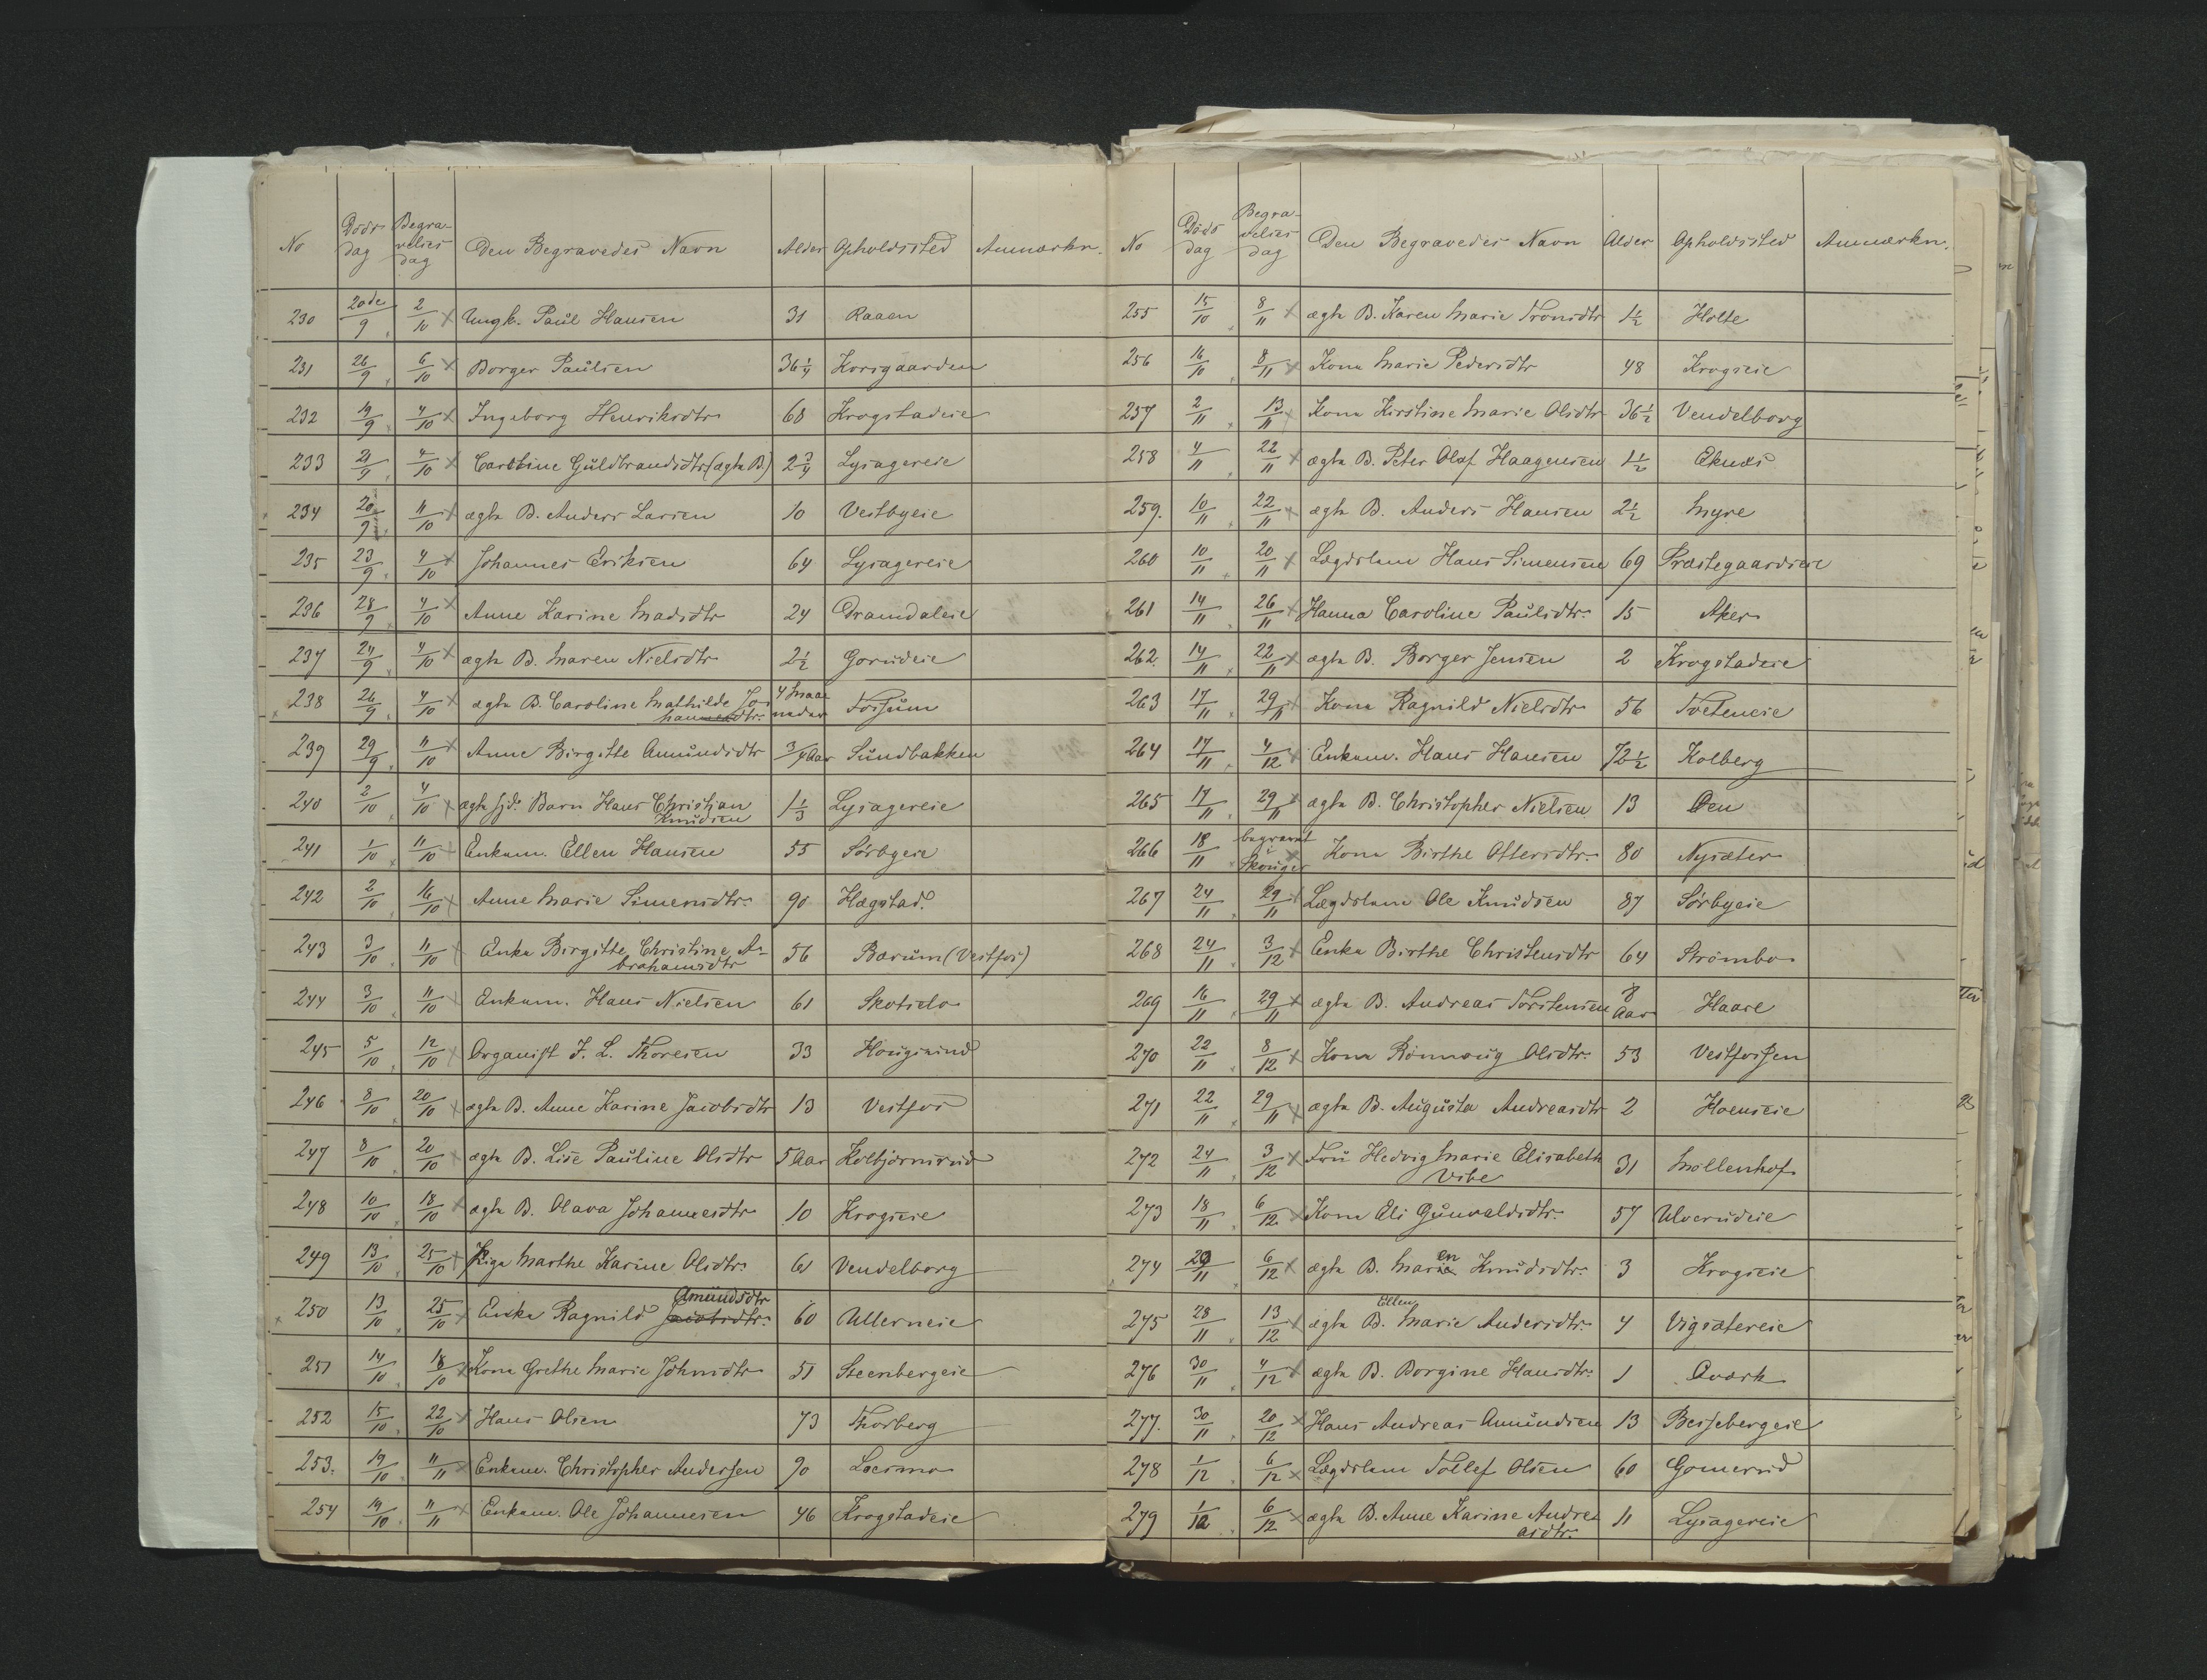 No Døds dag Begravelses dag Den Begravedes Navn Alder Opholdssted Anmærkn.
230 20de/9 2/10 x Ungk. Paul Hansen 31 Raaen
231 26/9 6/10 x Borger Paulsen 36 1/4 Korsgaarden
232 19/9 4/10 x Ingeborg Henriksdtr 68 Krogstadeie
233 21/9 4/10 x Caroline Guldbrandsdtr (ægte B.) 2 3/4 Lysagereie
234 20/9 11/10 x ægte B. Anders Larsen 10 Vestbyeie
235 23/9 4/10 x Johannes Eriksen 64 Lysagereie
236 28/9 4/10 x Anne Karine Madsdtr 24 Dramdaleie
237 24/9 4/10 x ægte B. Maren Nielsdtr 2 1/2 Gorudeie
238 26/9 4/10 x ægte B. Caroline Mathilde Jo- 4 Maa
hannesdtr. neder Fossum
239 29/9 11/10 x Anne Birgitte Amundsdtr 3/4 Aar Sundbakken
240 2/10 4/10 x ægte fjd. Barn Hans Christian 1 1/3 Lysagereie
Knudsen
241 1/10 11/10 x Enkem. Ellen Hansen 55 Sørbyeie
242 2/10 16/10 x Anne Marie Simensdtr. 90 Hægstad.
243 3/10 11/10 x Enke Birgitte Christine A- 56 Bærum (Vestfos)
brahamsdtr
244 3/10 11/10 x Enkem. Hans Nielsen 61 Skotselv
245 5/10 12/10 x Organist J. L. Thoresen 33 Hougsrind
246 8/10 20/10 x ægte B. Anne Karine Jacobsdtr 13 Vestfos
247 8/10 20/10 x ægte B. Lise Pauline Olsdtr 5 Aar Kolbjørnsrud
248 10/10 18/10 x ægte B. Olava Johannesdtr 10 Krogseie
249 13/10 25/10 x Pige Marthe Karine Olsdtr. 61 Vendelborg
Amundsdtr
250 13/10 25/10 x Enke Ragnild Jacobsdtr. 60 Ullerneie
251 14/10 18/10 x Kone Grethe Marie Johnsdtr 51 Steenbergeie
252 15/10 22/10 x Hans Olsen 73 Thorberg
253. 19/10 11/11 x Enkem. Christopher Andersen 90 Loesmo
254 19/10 11/11 x Enkem. Ole Johannesen 46 Krogstadeie
No Døds dag Begravelses dag Den Begravedes Navn Alder Opholdssted Anmærkn.
255 15/10 8/11 x ægte B. Karen Marie Tronsdtr 1 1/2 Holte
256 16/10 8/11 x Kone Marie Pedersdtr 48 Krogseie
257 2/11 13/11 x Kone Kirstine Marie Olsdtr 36 1/2 Vendelborg
258 4/11 22/11 x ægte B. Peter Olaf Haagensen 1 1/2 Eknæs
259. 10/11 22/11 x ægte B. Anders Hansen 2 1/2 Myre
260 10/11 20/11 x Lægdslem Hans Simensen 69 Præstegaardseie
261 14/11 26/11 x Hanna Caroline Paulsdtr. 15 Aker
262. 14/11 22/11 x ægte B. Borger Jensen 2 Krogstadeie
263 17/11 29/11 x Kone Ragnild Nielsdtr 56 Tveteneie
264 17/11 4/12 x Enkem. Hans Hansen 72 1/2 Kolberg
265 17/11 29/11 x ægte B. Christopher Nielsen 13 Oen
266 18/11 begravet i Skouger x Kone Birthe Ottersdtr. 80 Nysæter
267 24/11 29/11 x Lægdslem Ole Knudsen 87 Sørbyeie
268 24/11 3/12 x Enke Birthe Christensdtr 64 Strømbo
269 16/11 29/11 x ægte B. Andreas Torstensen 8 Aar Haare
270 22/11 8/12 x Kone Rønnoug Olsdtr. 53 Vestfossen
271 22/11 29/11 x ægte B. Augusta Andreasdtr 2 Hoenseie
272 24/11 3/12 x Fru Hedvig Marie Elisabeth 31 Møllenhof
Vibe
273 18/11 6/12 x Kone Eli Gunvaldsdtr. 57 Ulverudeie
en
274 29/11 6/12 x ægte B. Marie Knudsdtr. 3 Krogseie
Ellen
275 28/11 13/12 x ægte B. Marie Andersdtr. 4 Vigsætereie
276 30/11 4/12 x ægte B. Borgine Hansdtr. 1 Qværk
277. 30/11 20/12 x Hans Andreas Amundsen 13 Bessebergeie
278 1/12 6/12 x Lægdslem Tollef Olsen 60 Gomerud
279 1/12 6/12 x ægte B. Anne Karine Andre 11 Lysagereie
asdtr.